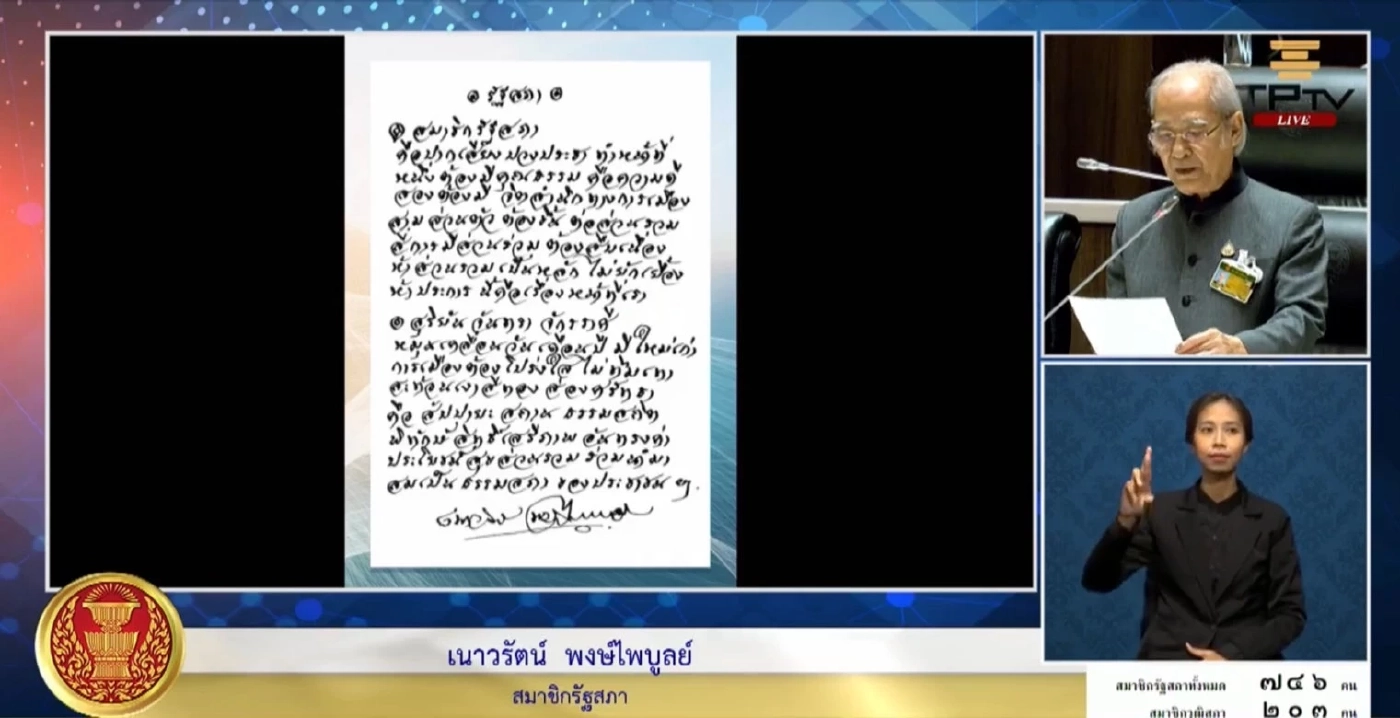 ๏ รัฐสภา ๏
๏ สมาชิกรัฐสภา
คือปากเสียงปวงประชา ทำหน้าที่
หนึ่งต้องมีคุณธรรม คือความดี
สองต้องมี จิตสำนึกทางการเมือง
สาม ส่วนตัว ต้องขึ้น ต่อส่วนรวม
สี่การมีส่วนร่วม ต้องสืบเนื่อง
ห้าส่วนรวมเป็นหลัก ไม่ยักเยื้อง
ห้าประการ นี้คือเรื่องหน้าที่เรา
๏ สุริยัน จันทรา จักรราศี
หมุนเคลื่อนวันเดือนปี ปีใหม่เก่า
การเมืองต้องโปร่งใส ไม่ทึมเทา
สะท้อนเงาสีทอง ส่องศรัทธา
คือ สัปปายะ สถาน ธรรมสถิต
พิทักษ์สิทธิ์เสรีภาพ อันทรงค่า
ประโยชน์สุขส่วนรวม ร่วมนำมา
สมเป็น ธรรมสภา ของประชาชน ฯ
TPTV
LIVE
เนาวรัตน์ พงษ์ไพบูลย์
สมาชิกรัฐสภา
สมาชิกรัฐสภาทั้งหมด ๗๔๖ คน
สมาชิกวุฒิสภา ๒๐๓ คน